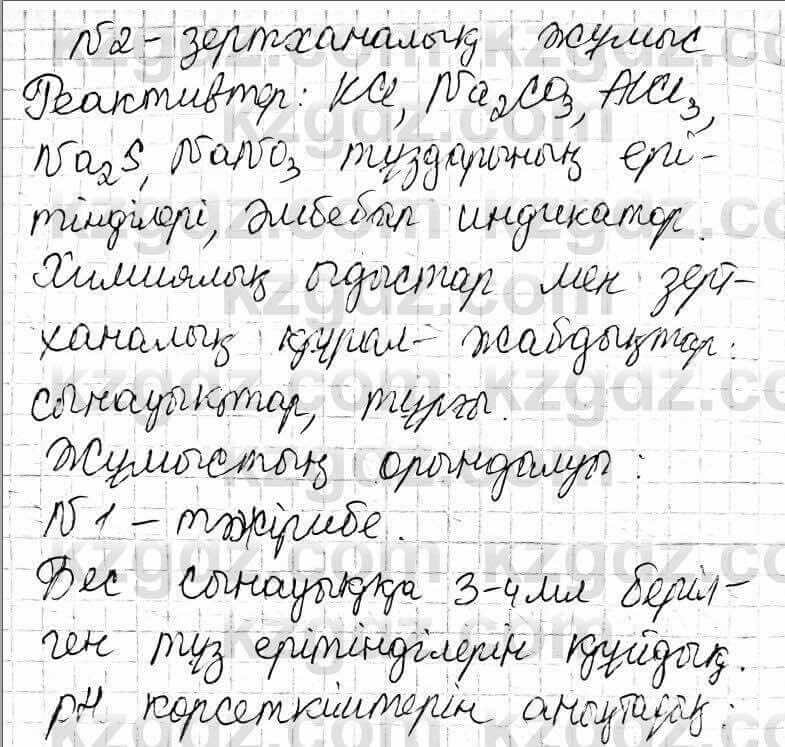 №2 - зертханалық жұмыс
Реактивтер: KCl, Na₂CO₃, AlCl₃,
Na₂S, NaNO₃ тұздарының ері-
тінділері, әмбебап индикатор.
Химиялық ыдыстар мен зерт-
ханалық құрал-жабдықтар:
сынауықтар, тұрғы.
Жұмыстың орындалуы:
№1 - тәжірибе.
Бес сынауыққа 3-4 мл беріл-
ген тұз ерітінділерін құйдық.
pH көрсеткіштерін анықтадық:
kzgdz.com